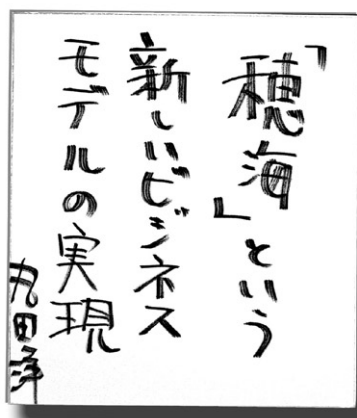 「穂海」という
新しいビジネス
モデルの実現
丸田洋